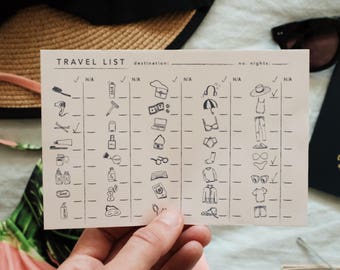 TRAVEL LIST destination: no. nights:
✓ N/A ✓ N/A ✓ N/A ✓ N/A